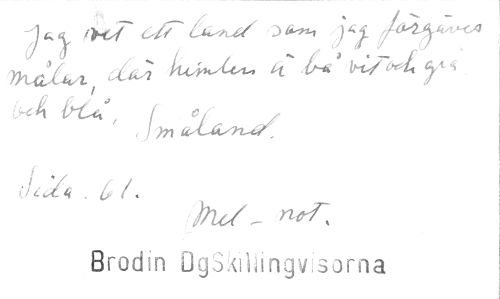 Jag vet ett land som jag förgäves
målar, där himlen är bå vit och grå
och blå.
Småland.
Sida. 61.
Mel - not.
Brodin DgSkillingvisorna